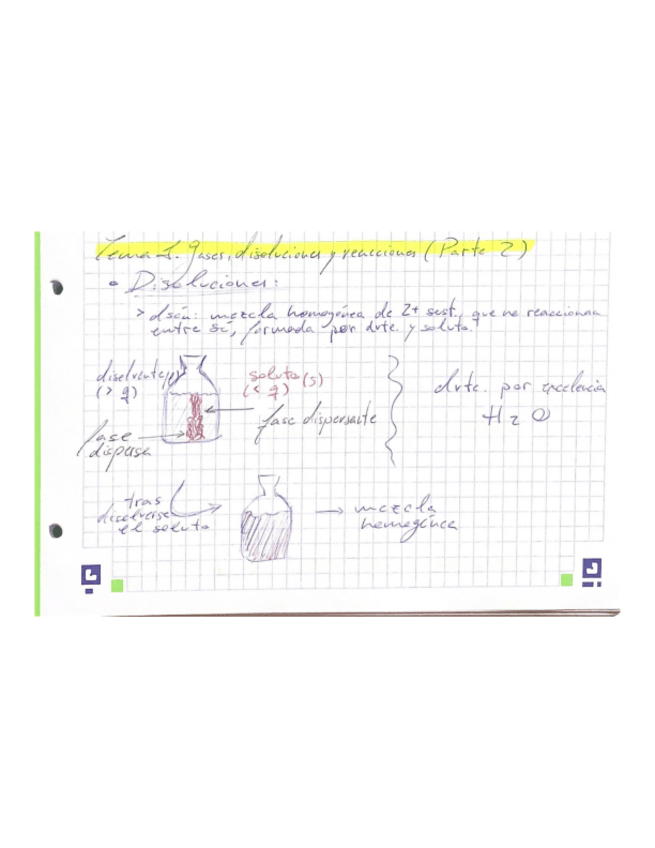 Tema 1. Gases, disoluciones y reacciones (Parte 2)
• Disoluciones:
> dson: mezcla homogénea de 2+ sust., que no reaccionan
entre sí, formada por dvte. y soluto.
disolvente
(> q)
soluto (s)
(< q)
fase dispersante
fase
dispersa
dvte. por excelencia
H2O
tras
disolverse
el soluto
→ mezcla
homogénea